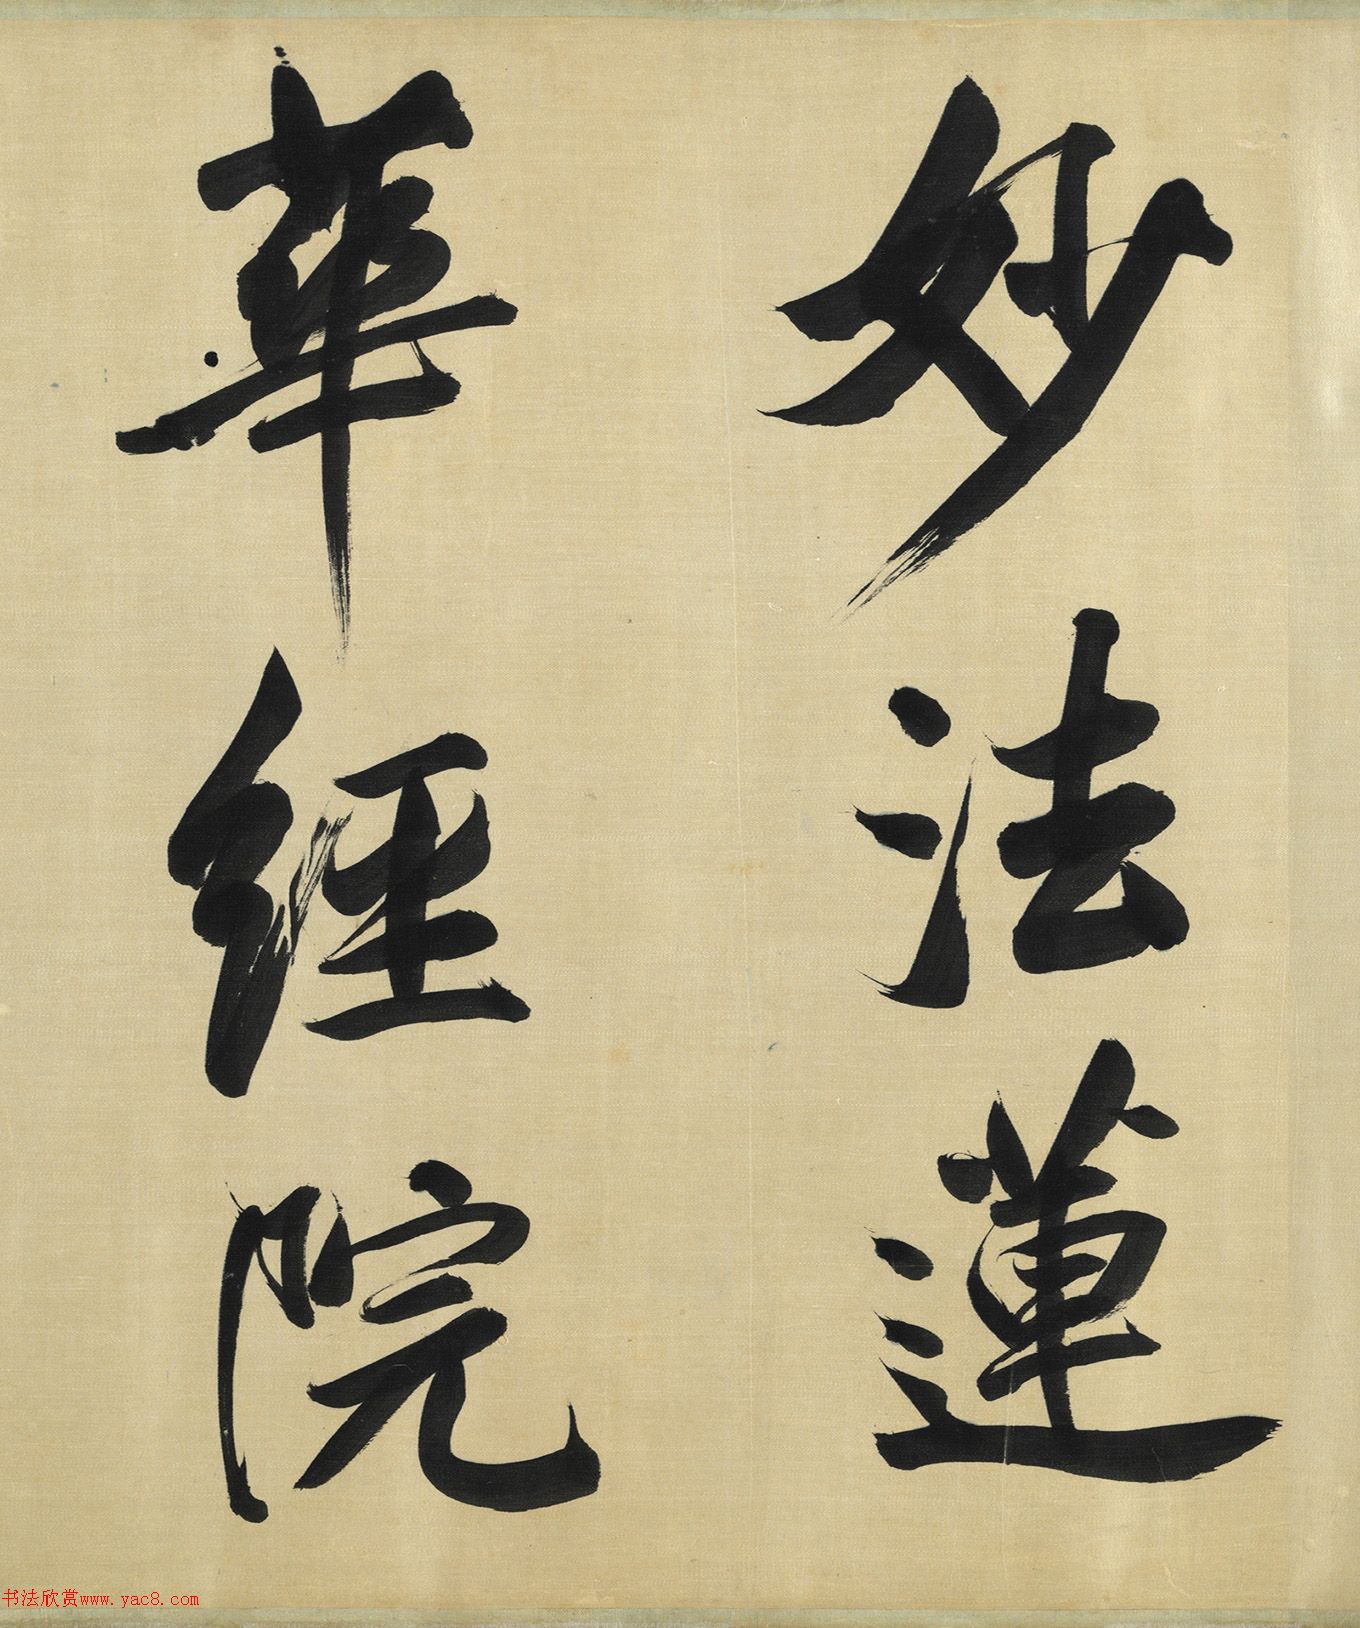 妙法蓮
華經院
书法欣赏www.yac8.com